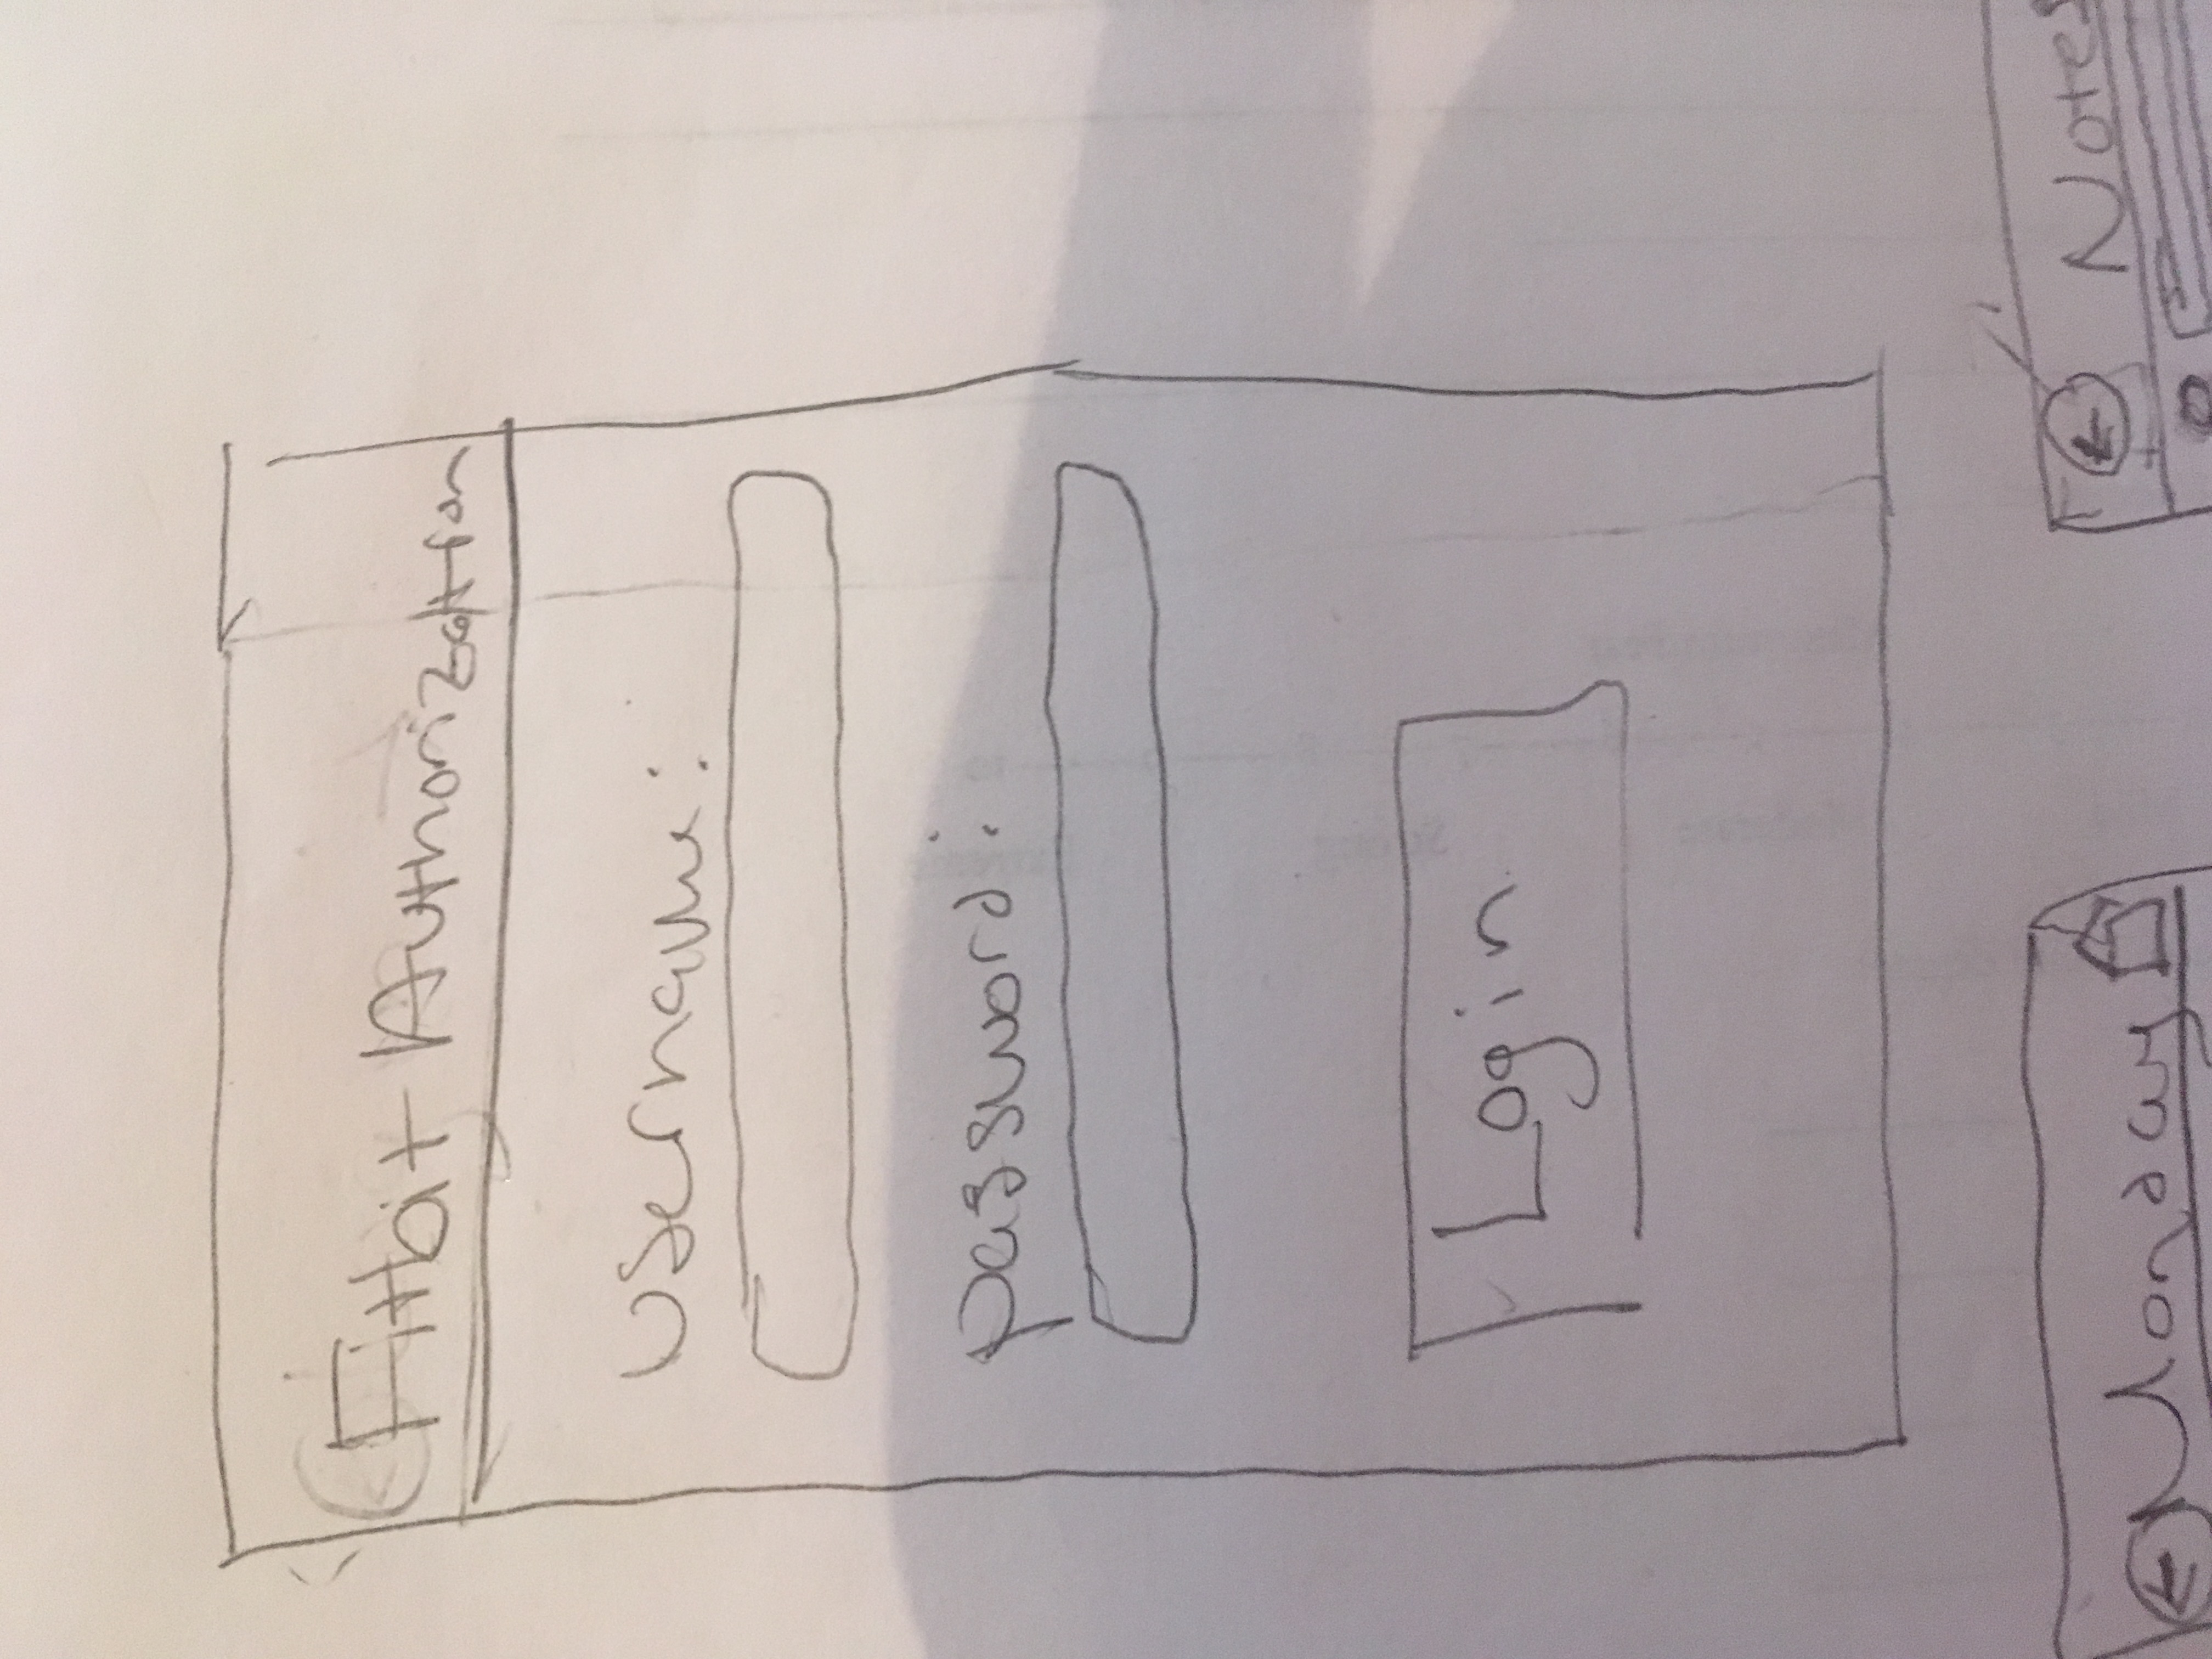 Fitbit Authorization
Username:
password:
Login
Monday
Notes